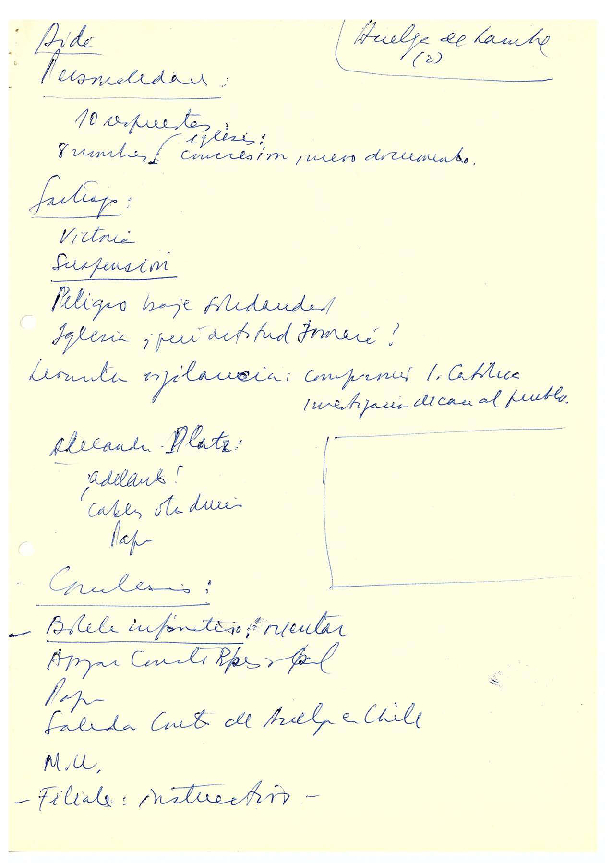 Huelga de hambre
(2)
Aida
Personalidades:
10 respuestas.
Iglesia:
concresión, nuevo documento.
Santiago:
Victoria
Suspensión
Peligro baje solidaridad
Iglesia ¿qué actitud tomará?
Levanta vigilancia: compromiso I. Católica
Investigación de cara al pueblo.
Mar Plata:
¡adelante!
cables
Papa
Conclusiones:
- Boletín informativo: orientar
Apoyar Comité
Papa
Saluda Comité de Huelga en Chile
M.U.
- Filiales: instructivo -